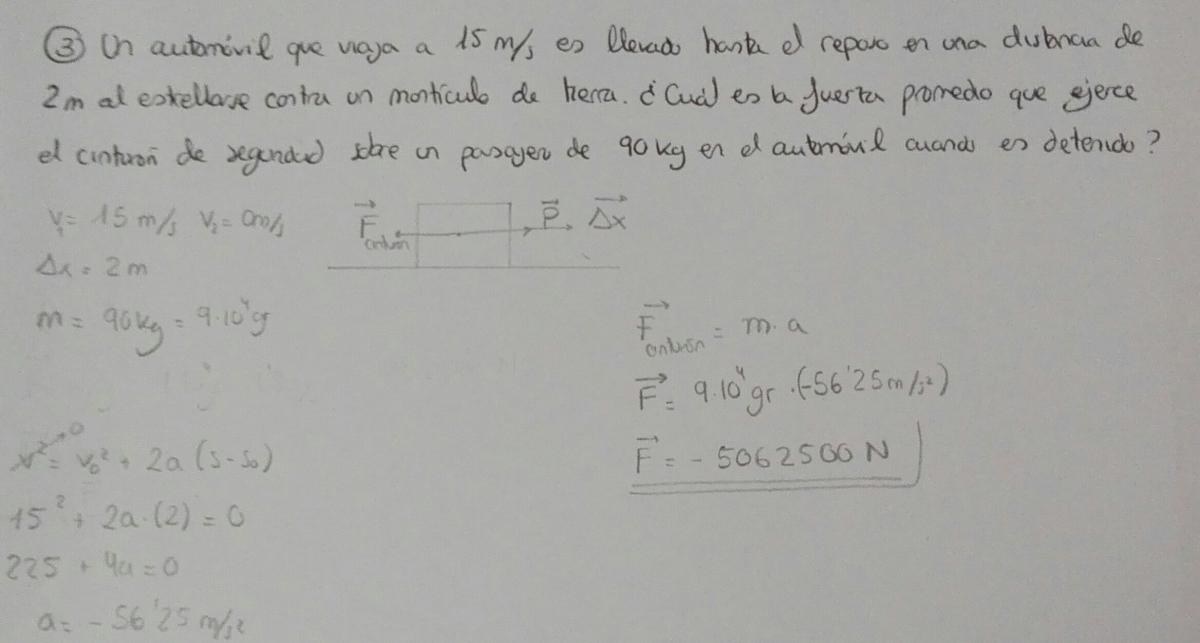 ③ Un automóvil que viaja a 15 m/s es llevado hasta el reposo en una distancia de
2m al estrellarse contra un montículo de tierra. ¿Cuál es la fuerza promedio que ejerce
el cinturón de seguridad sobre un pasajero de 90 kg en el automóvil cuando es detenido?
V₁= 15 m/s V₂= 0m/s
F⃗ cinturón P⃗ Δx⃗
Δx = 2m
m = 90kg = 9·10⁴gr
F⃗ cinturón = m·a
F⃗ = 9·10⁴gr·(-56'25m/s²)
F⃗ = - 5062500 N
v²→0 = v₀² + 2a (s-s₀)
15² + 2a·(2) = 0
225 + 4a = 0
a = - 56'25 m/s²